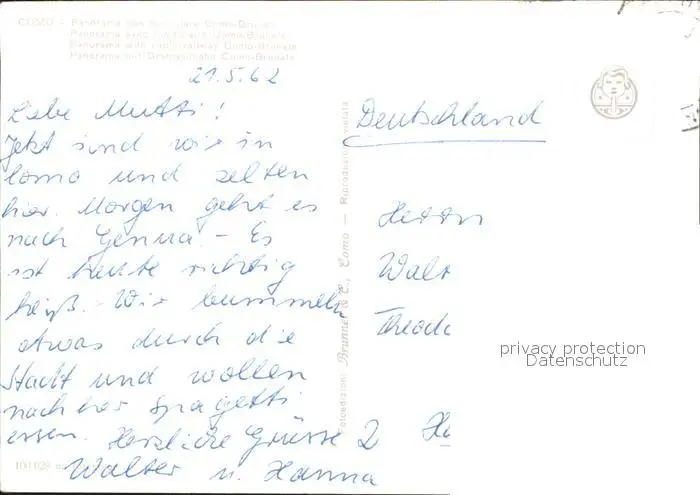 COMO - Panorama con funicolare Como-Brunate
Panorama avec funiculaire Como-Brunate
Panorama with rope railway Como-Brunate
Panorama mit Drahtseilbahn Como-Brunate
21.5.62
Liebe Mutti!
Jetzt sind wir in
Como und zelten
hier. Morgen geht es
nach Genua. - Es
ist heute richtig
heiß. - Wir bummeln
etwas durch die
Stadt und wollen
nachher Spagetti
essen. Herzliche Grüsse
Walter u. Hanna
101028
Fotoedizioni Brunner & C., Como - Riproduzione vietata
Deutschland
Herrn
Walt
Theodo
2 Ha
privacy protection
Datenschutz